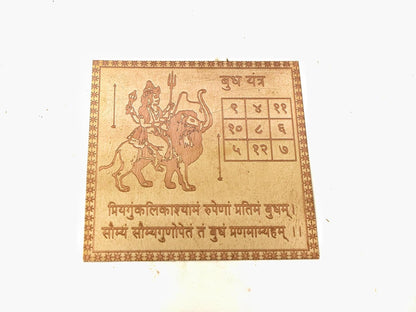 बुध यंत्र
९ ४ ११
१० ८ ६
५ १२ ७
प्रियगुकलिकाश्यामं रुपेणां प्रतिमं बुधम्।
सौम्यं सौम्यगुणोपेतं तं बुधं प्रणमाम्यहम् ।।